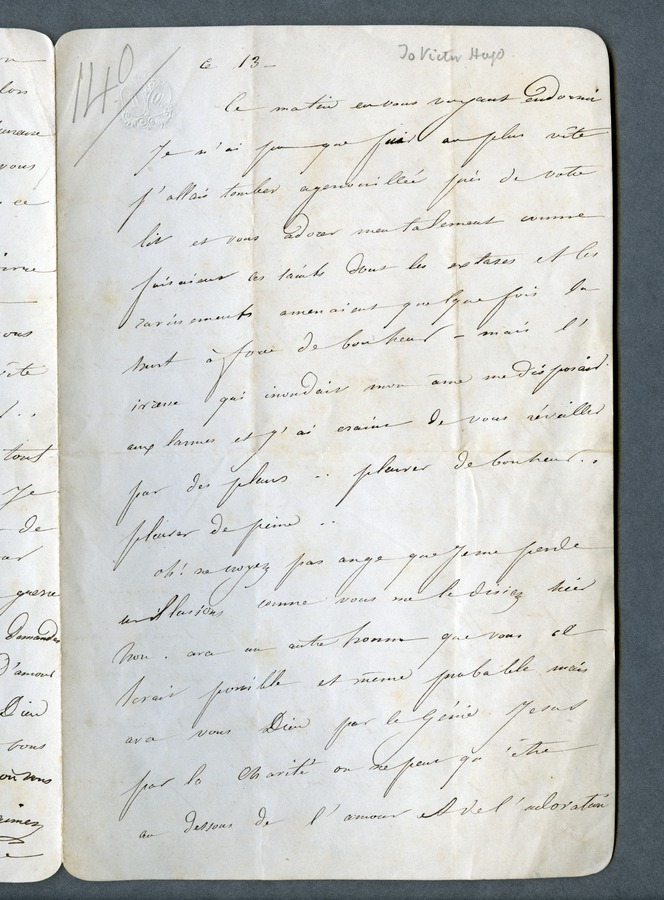 140
To Victor Hugo
ce 13 -
Ce matin en vous voyant endormi
Je n'ai pu que fuir au plus vite
J'allais tomber agenouillée près de votre
lit et vous adorer mentalement comme
faisaient ces saints dont les extases et les
ravissements amenaient quelque fois la
mort à force de bonheur - mais l'
ivresse qui inondait mon âme me disposait
aux larmes et j'ai craint de vous réveiller
par des pleurs .. pleurer de bonheur ..
pleurer de peine ..
oh! ne croyez pas ange que Je me perde
en illusions comme vous me le disiez hier
Non. avec un autre homme que vous cel
serait possible et même probable mais
avec vous Dieu par le Génie Jesus
par la Charité on ne peut qu'être
au dessous de l'amour et de l'adoration
lors
vous
ce
vous
vite
tout
Je
de
guerre
demander
d'amour
Dieu
vous